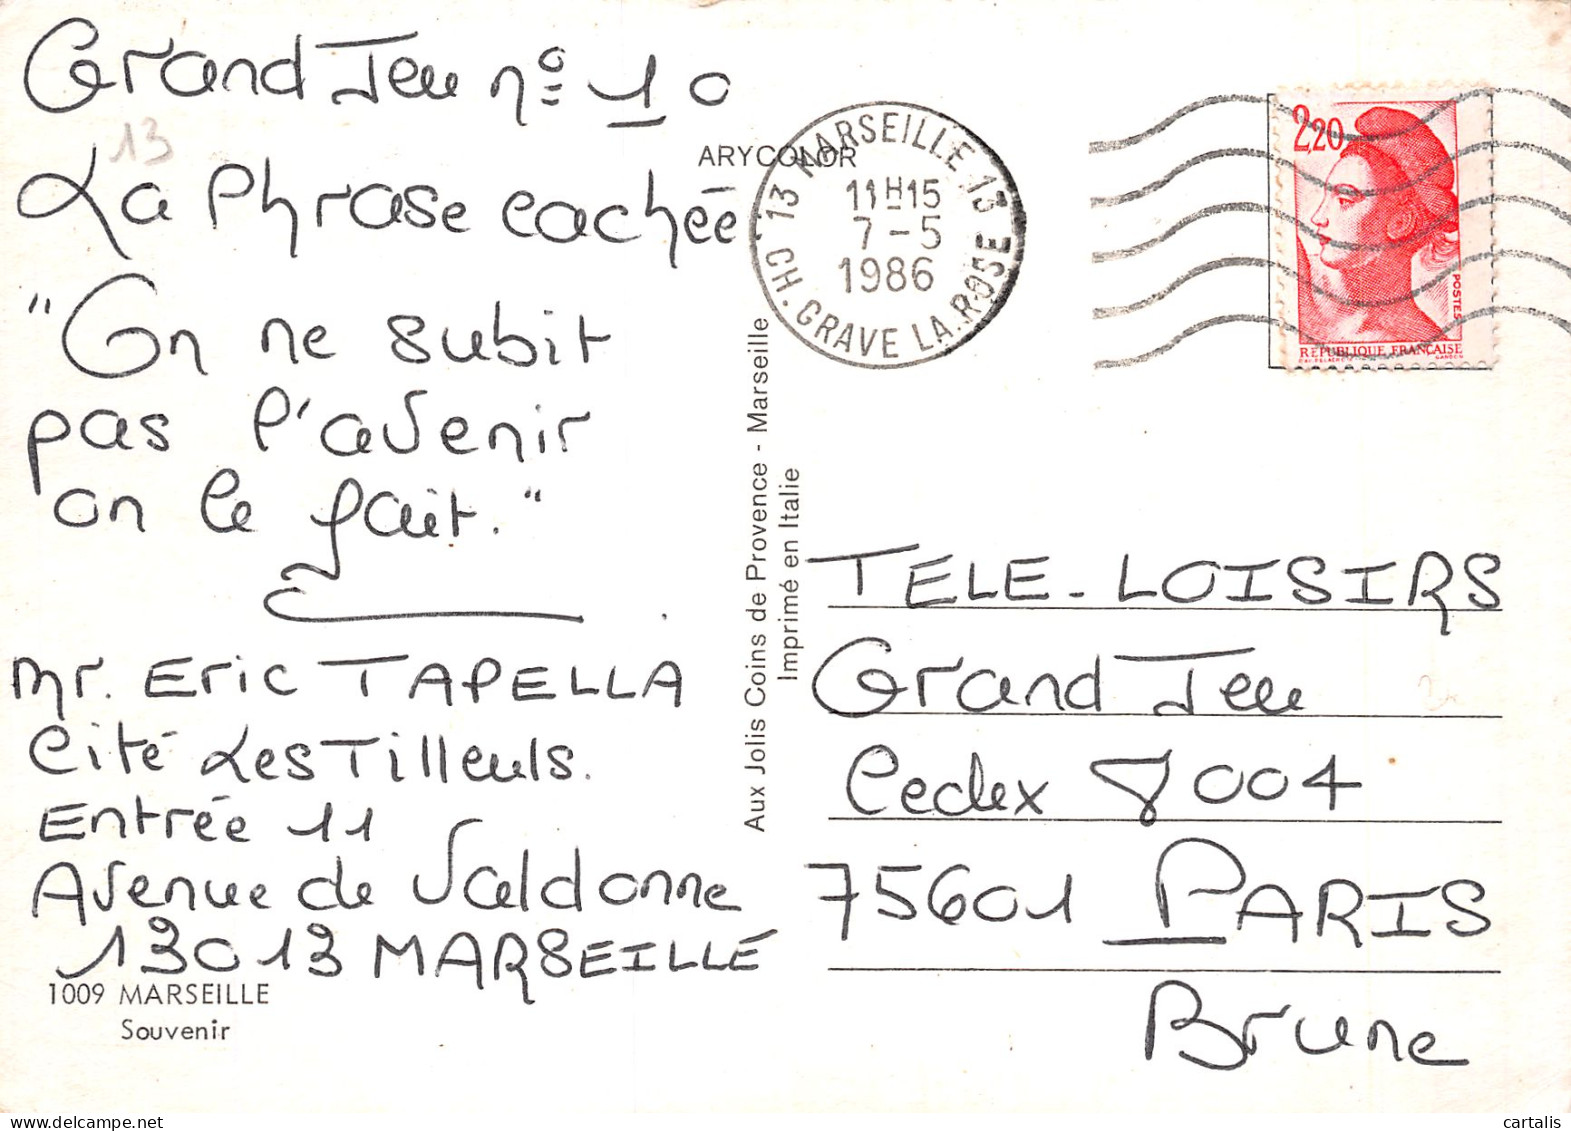 Grand Jeu n° 10
13
La Phrase cachée
"On ne subit
pas l'avenir
on le fait."
Mr. Eric TAPELLA
Cité Les Tilleuls.
Entrée 11
Avenue de Valdonne
13013 MARSEILLE
1009 MARSEILLE
Souvenir
ARYCOLOR
Aux Jolis Coins de Provence - Marseille
Imprimé en Italie
13 MARSEILLE 13
11H15
7-5
1986
CH. GRAVE LA ROSE
2,20
POSTES
REPUBLIQUE FRANÇAISE
GANDON
TELE-LOISIRS
Grand Jeu
Cedex 8004
75601 PARIS
Brune
cartalis